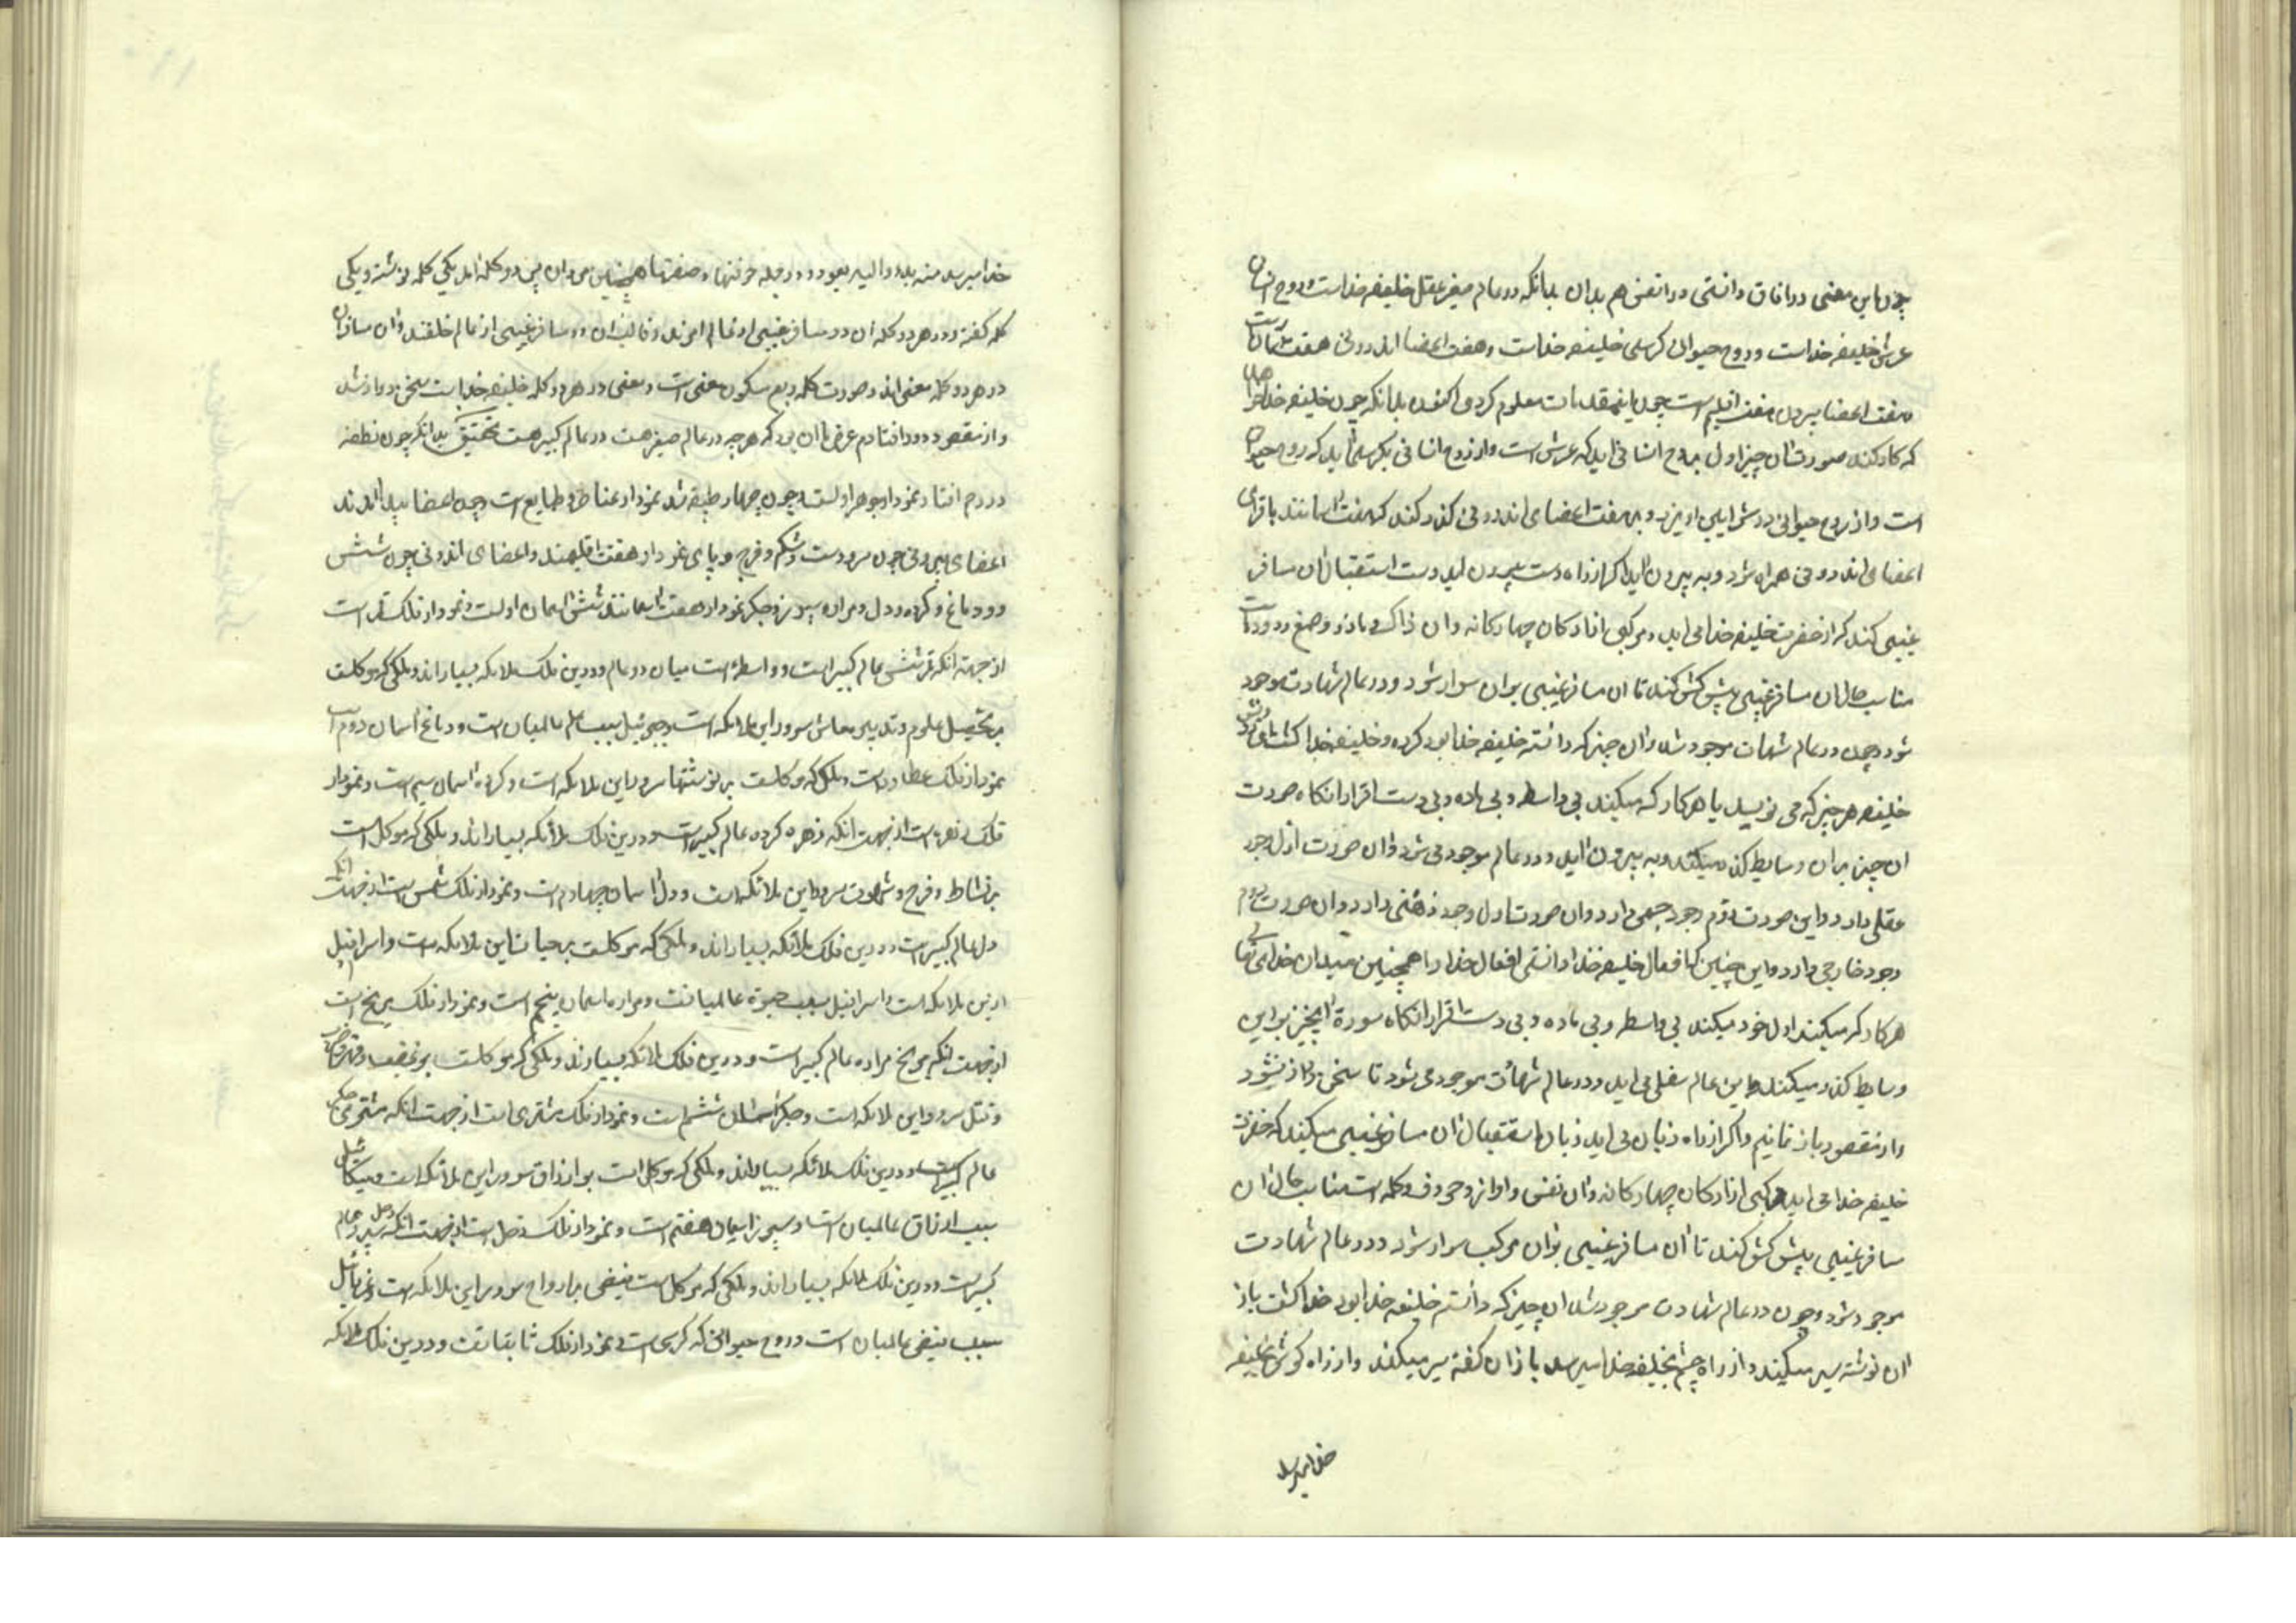 چون این معنی در افاق دانستی در انفس هم بدان بدانکه در عالم صغیر عقل خلیفه خداست و روح انسانی
عرش خلیفه خداست و روح حیوانی کرسی خلیفه خداست و هفت اعضا اندرونی هفت سماوات
هفت اعضا بیرون هفت اقلیم است چون این مقدمات معلوم کردی اکنون بدانکه چون خلیفه خدا خواهد
که کاری کند صورت ان چیز اول بروح انسانی اید که عرش است و از روح انسانی بکرسی اید که روح حیوانی
است و از روح حیوانی در شرایین اویزد و بر هفت اعضای اندرونی کذر کند که هفت اسمانند با قوای
اعضای اندرونی همراه شود و به بیرون اید اکر از راه دست بیرون اید دست استقبال ان مسافر
غیبی کند که از حضرت خلیفه خدا می اید و مرکبی از ارکان چهارکانه و ان زاک و مازو و صمغ و دوده است
مناسب حال ان مسافر غیبی پیش کش کند تا ان مسافر غیبی بر ان سوار شود و در عالم شهادت موجود
شود و چون در عالم شهادت موجود شد و ان چیز که دانسته خلیفه خدا بود کرده خلیفه خدا کشت
خلیفه هر چیز که می نویسد یا هر کار که میکند بی واسطه و بی ماده و بی دست افزار انکاه صورت
ان چیز بر ان وسایط کذر میکند و به بیرون اید و در عالم موجود می شود و ان صورت اول وجود
عقلی دارد و این صورت دوم وجود حسی دارد و ان صورت اول وجود ذهنی دارد و ان صورت دوم
وجود خارجی دارد و این چنین که افعال خلیفه خدا دانستی افعال خدا را همچنین میدان خدای تعالی
هر کار که میکند اول خود میکند بی واسطه و بی ماده و بی دست افزار انکاه صورة انچیز بر این
وسایط کذر میکند و باین عالم سفلی می اید و در عالم شهادت موجود می شود تا سخن دراز نشود
و از مقصود باز نمانیم و اکر از راه زبان می اید زبان استقبال ان مسافر غیبی میکند که از حضرت
خلیفه خدا می اید و مرکبی از ارکان چهارکانه و ان نفس و اواز و حروف و کلمه است مناسب حال ان
مسافر غیبی پیش کش کند تا ان مسافر غیبی بر ان مرکب سوار شود و در عالم شهادت
موجود شود و چون در عالم شهادت موجود شد ان چیز که دانسته خلیفه خدا بود خدا کشت باز
ان نوشته سیر میکند و از راه چشم بخلیفه خدا میرسد باز ان کفته سیر میکند و از راه کوش بخلیفه
خدا میرسد
خدا میرسد منه بدء و الیه یعود و در جمله حرفتها و صنعتها همچنین میدان پس دو کلمه اند یکی کلمه نوشته و یکی
کلمه کفته و در هر دو کلمه ان دو مسافر غیبی از عالم امرند و قالب ان دو مسافر غیبی از عالم خلقند و ان مسافران
در هر دو کلمه معنی اند و صورت کلمه ربع مسکون معنی است و معنی در هر دو کلمه خلیفه خداست سخن دراز شد
و از مقصود دور افتادم غرض ما ان بود که هر چه در عالم صغیر هست در عالم کبیر هست تحقیق بدانکه چون نطفه
در رحم افتاد نمودار جوهر اولست و چون چهار طبقه شد نمودار عناصر و طبایع است و چون اعضا پیدا امدند
اعضای بیرونی چون سر و دست و شکم و فرج و پای نمودار هفت اقلیمند و اعضای اندرونی چون شش
و دماغ و کرده و دل و مراره و سپرز و جکر نمودار هفت اسمانند شش اسمان اولست و نمودار فلک قمر است
از جهة انکه قمر شش عالم کبیر است و واسطه است میان دو عالم و در این فلک ملایکه بسیار اند و ملکی که موکلست
بر تحصیل علوم و تدبیر معاش سرور این ملائکه است و جبرئیل سبب علم عالمیان است و دماغ اسمان دوم است
نمودار فلک عطارد است و ملکی که موکلست بر نوشتنها سرور این ملایکه است و کرده اسمان سیم است و نمودار
فلک زهره است از جهت انکه زهره کرده عالم کبیر است و در این فلک ملائکه بسیار اند و ملکی که موکل است
بر نشاط و فرح و شهوت سرور این ملائکه است و دل اسمان چهارم است و نمودار فلک شمس است از جهت انکه شمس
دل عالم کبیر است و در این فلک ملائکه بسیار اند و ملکی که موکلست بر حیات سرور این ملایکه است و اسرافیل
ازین ملایکه است و اسرافیل سبب حیوة عالمیانست و مراره اسمان پنجم است و نمودار فلک مریخ است
از جهت انکه مریخ مراره عالم کبیر است و در این فلک ملائکه بسیارند و ملکی که موکلست بر غضب و قهر و ضرب
و قتل سرور این ملایکه است و جکر اسمان ششم است و نمودار فلک مشتری است از جهت انکه مشتری جکر
عالم کبیر است و در این فلک ملائکه بسیار اند و ملکی که موکل است بر ارزاق سرور این ملائکه است و میکائیل
سبب ارزاق عالمیان است و سپرز اسمان هفتم است و نمودار فلک زحل است از جهت انکه زحل سپرز عالم
کبیر است و در این فلک ملائکه بسیار اند و ملکی که موکل است بقبض ارواح سرور این ملایکه است و عزرائیل
سبب قبض عالمیان است و روح حیوانی که کرسی است نمودار فلک ثابتات است و در این فلک ملایکه